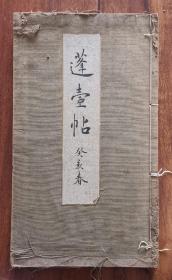 蓬壺帖
癸亥春